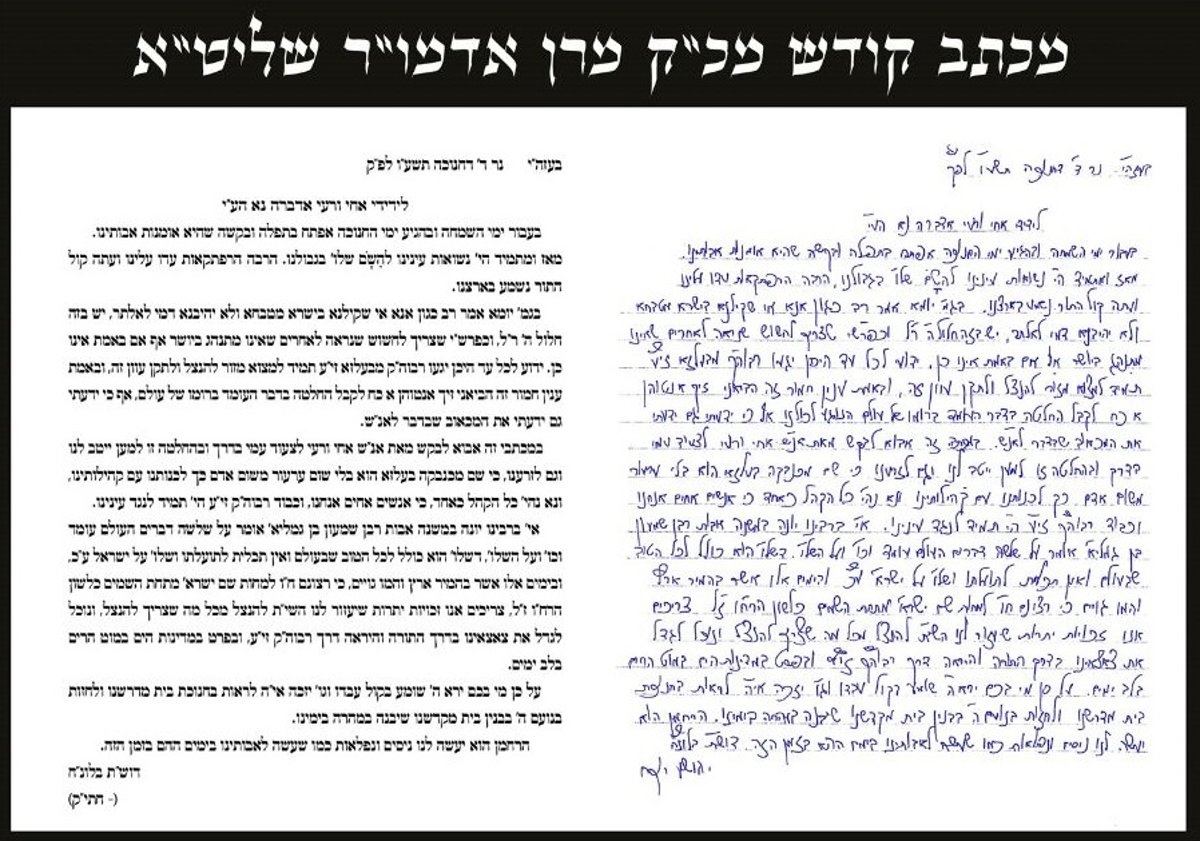 מכתב קודש מכ"ק מרן אדמו"ר שליט"א
בעזה"י נר ד' דחנוכה תשע"ו לפ"ק
לידידי אחי ורעי אדברה נא הע"י
בעבור ימי השמחה ובהגיע ימי החנוכה אפתח בתפלה ובקשה שהיא אומנות אבותינו.
מאז ומתמיד הי' נשואות עינינו להשָׁם שלו' בגבולנו, הרבה הרפתקאות עדו עלינו
ועתה קול התור נשמע בארצנו. בגמ' יומא אמר רב כגון אנא אי שקילנא בישרא מטבחא
ולא יהיבנא דמי לאלתר, יש בזה חלול ה' ר"ל, וכפרש"י שצריך לחשוש שנראה לאחרים שאינו
מתנהג ביושר אף אם באמת אינו כן. ידוע לכל עד היכן יגעו רבוה"ק מבעלזא זי"ע
תמיד למצוא מזור להנצל ולתקן עוון זה, ובאמת ענין חמור זה הביאני זיך אנטוהן
א כח לקבל החלטה בדבר העומד ברומו של עולם אף כי ידעתי גם ידעתי
את המכאוב שבדבר לאנ"ש. במכתבי זה אבוא לבקש מאת אנ"ש אחי ורעי לצעוד עמי
בדרך ובהחלטה זו למען ייטב לנו וגם לזרענו כי שם מכנבקה בעלזא הוא בלי ערעור
משום אדם כך לבנותנו עם קהילותינו ונא נהי' כל הקהל כאחד כי אנשים אחים אנחנו
וכבוד רבוה"ק זי"ע הי' תמיד לנגד עינינו. אי' ברבינו יונה במשנה אבות רבן שמעון
בן גמליא' אומר על שלשה דברים העולם עומד וכו' ועל השלו', השלו' הוא כולל לכל הטוב
שבעולם ואין תכלית לתועלתו ושלו' על ישרא' ע"כ, ובימים אלו אשר בהמיר ארץ
והמו גוים כי רצונם ח"ו למחות שם ישרא' מתחת השמים כלשון הרח"ו ז"ל צריכים
אנו זכויות יתרות שיעזור לנו השי"ת להנצל מכל מה שצריך להנצל ונוכל לגדל
את צאצאינו בדרך התורה והיראה דרך רבוה"ק זי"ע ובפרט במדינות הים במוט הרים
בלב ימים. על כן מי בכם ירא ה' שומע בקול עבדו וגו' יזכה אי"ה לראות בחנוכת
בית מדרשנו ולחזות בנועם ה' בבנין בית מקדשנו שיבנה במהרה בימינו. הרחמן הוא
יעשה לנו ניסים ונפלאות כמו שעשה לאבותינו בימים ההם בזמן הזה. דוש"ת בלונ"ח
בעזה"י נר ד' דחנוכה תשע"ו לפ"ק
לידידי אחי ורעי אדברה נא הע"י
בעבור ימי השמחה ובהגיע ימי החנוכה אפתח בתפלה ובקשה שהיא אומנות אבותינו.
מאז ומתמיד הי' נשואות עינינו להשָׁם שלו' בגבולנו. הרבה הרפתקאות עדו עלינו ועתה קול
התור נשמע בארצנו.
בגמ' יומא אמר רב כגון אנא אי שקולנא בישרא מטבחא ולא יהיבנא דמי לאלתר, יש בזה
חלול ה' ר"ל, וכפרש"י שצריך לחשוש שנראה לאחרים שאינו מתנהג ביושר אף אם באמת אינו
כן. ידוע לכל עד היכן יגעו רבוה"ק מבעלזא זי"ע תמיד למצוא מזור להנצל ולתקן עוון זה, ובאמת
ענין חמור זה הביאני זיך אנטוהן א כח לקבל החלטה בדבר העומד ברומו של עולם, אף כי ידעתי
גם ידעתי את המכאוב שבדבר לאנ"ש.
במכתבי זה אבוא לבקש מאת אנ"ש אחי ורעי לצעוד עמי בדרך ובהחלטה זו למען ייטב לנו
וגם לזרענו, כי שם מכנבקה בעלזא הוא בלי שום ערעור משום אדם כך לבנותנו עם קהילותינו,
ונא נהי' כל הקהל כאחד, כי אנשים אחים אנחנו, וכבוד רבוה"ק זי"ע הי' תמיד לנגד עינינו.
אי' ברבינו יונה במשנה אבות רבן שמעון בן גמליא' אומר על שלשה דברים העולם עומד
וכו' ועל השלו', השלו' הוא כולל לכל הטוב שבעולם ואין תכלית לתועלתו ושלו' על ישראל ע"כ,
ובימים אלו אשר בהמיר ארץ והמו גויים, כי רצונם ח"ו למחות שם ישרא' מתחת השמים כלשון
הרח"ו ז"ל, צריכים אנו זכויות יתרות שיעזור לנו השי"ת להנצל מכל מה שצריך להנצל, ונוכל
לגדל את צאצאינו בדרך התורה והיראה דרך רבוה"ק זי"ע, ובפרט במדינות הים במוט הרים
בלב ימים.
על כן מי בכם ירא ה' שומע בקול עבדו וגו' יזכה אי"ה לראות בחנוכת בית מדרשנו ולחזות
בנועם ה' בבנין בית מקדשנו שיבנה במהרה בימינו.
הרחמן הוא יעשה לנו ניסים ונפלאות כמו שעשה לאבותינו בימים ההם בזמן הזה.
דוש"ת בלונ"ח
(- חתי"ק)